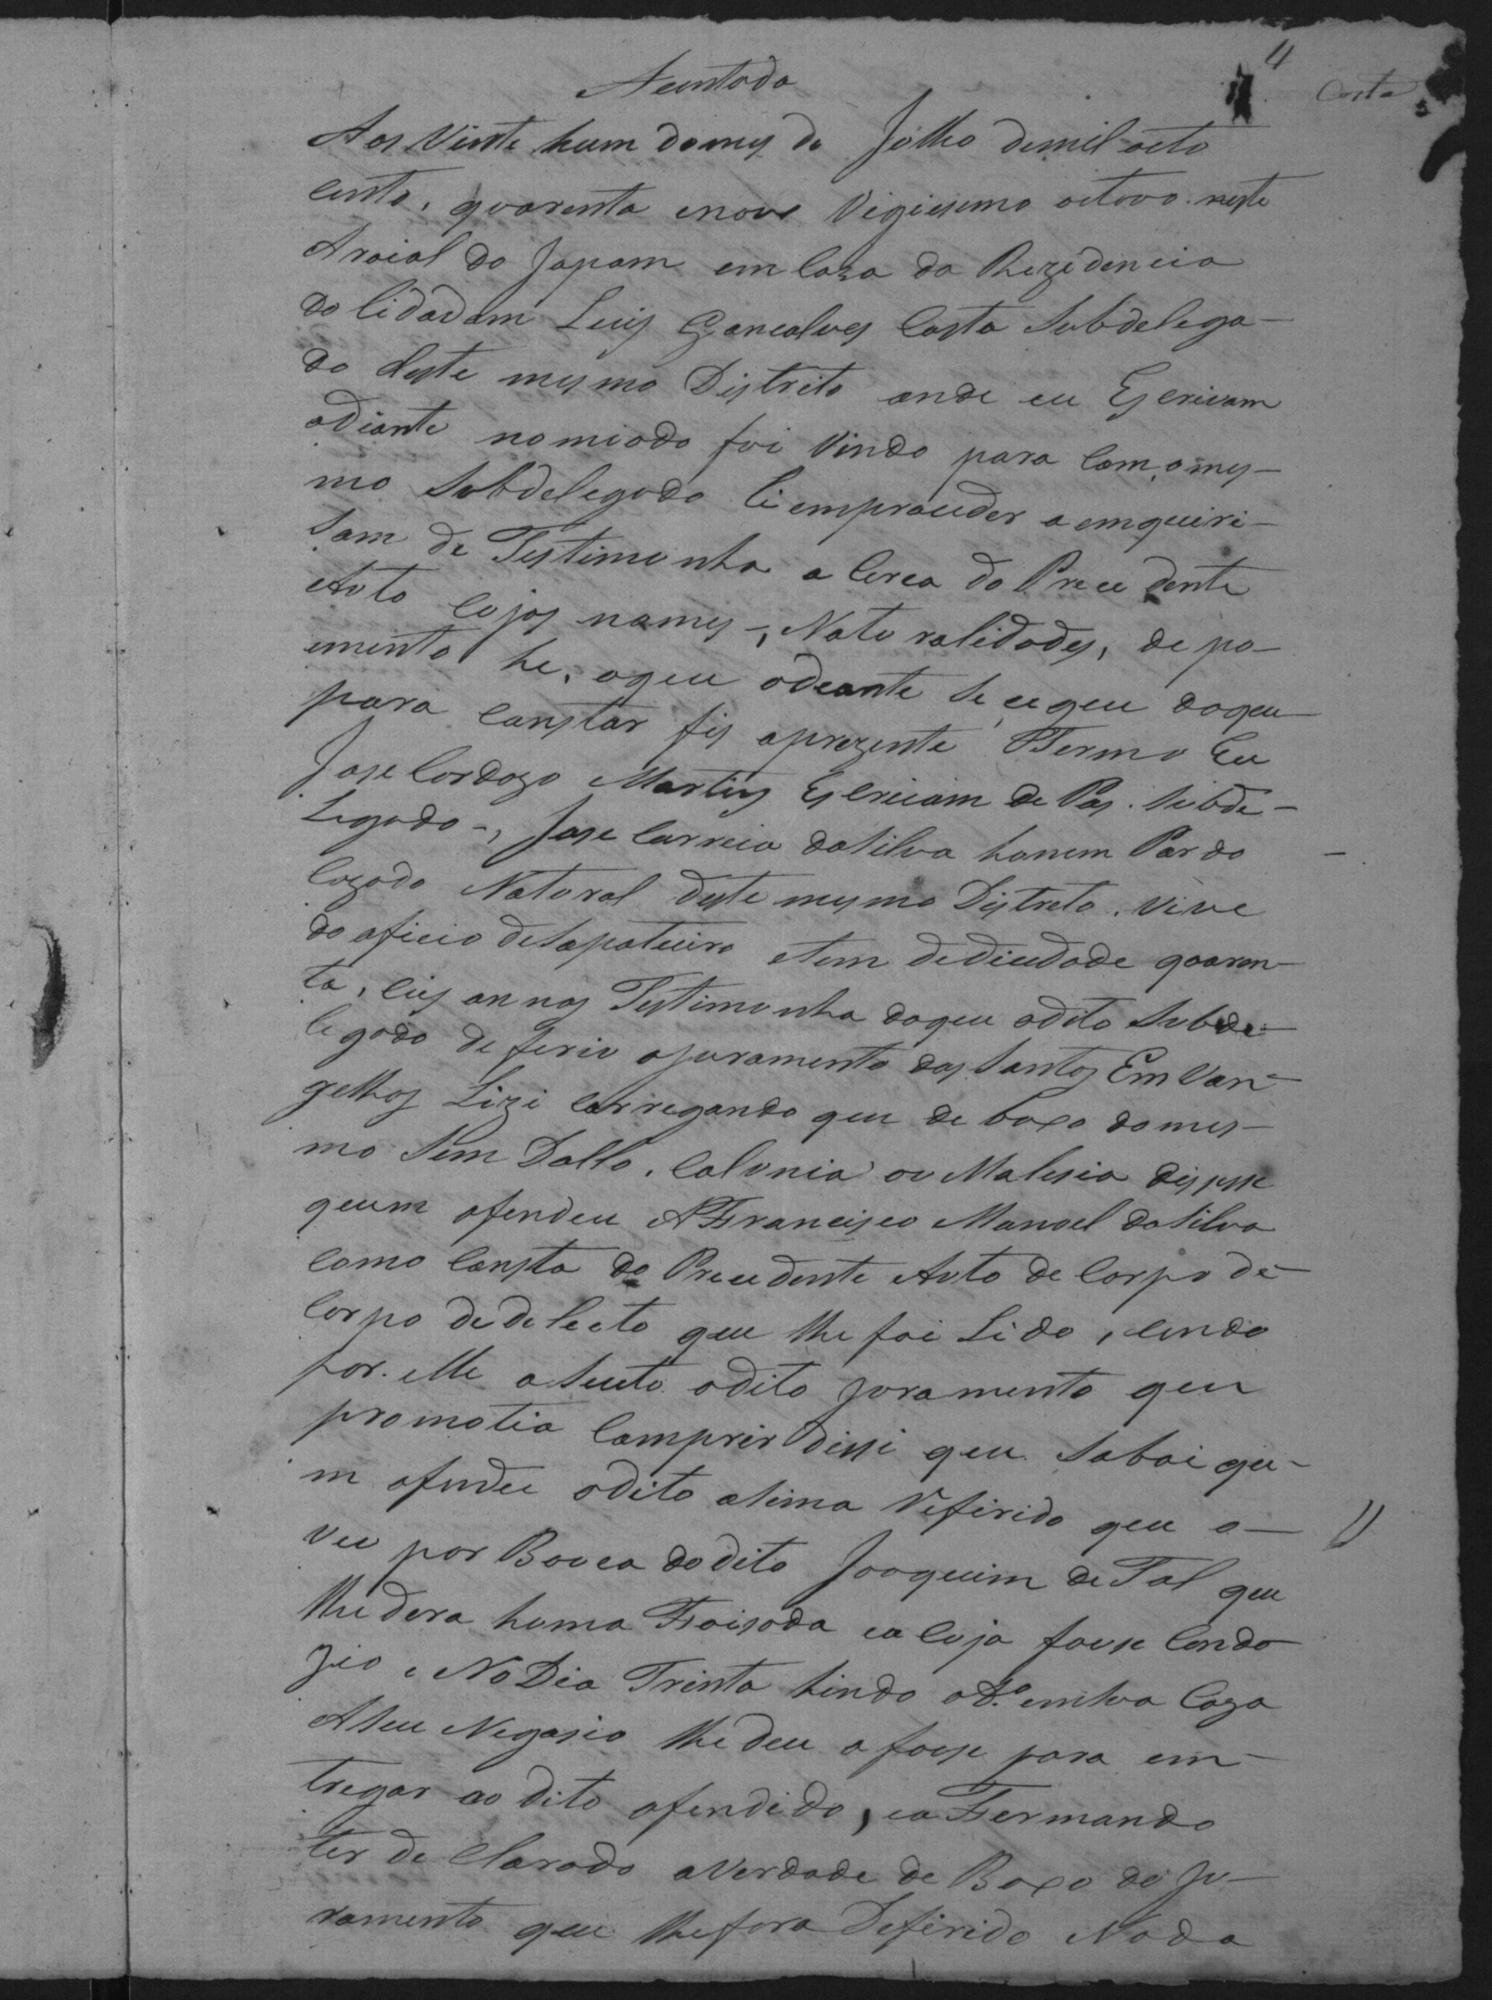 4
Costa
Asentada
Aos Vinte hum do mes de Julho de mil oito
cento, quarenta e nove Vigiesimo oitovo neste
Araial do Japam em Caza da Rezidencia
do Cidadam Luis Goncalves Costa Subdelega-
do deste mesmo Distrito onde eu Escrivam
adiante nomiado foi Vindo para Com o mes-
mo Subdelegado
sam de Testimunha a Cerca do Precedente
Auto Cujos nomes, Naturalidades, depo-
emento he, o que adeante se segeu do qeu
para Constar fis aprezente Termo Eu
Jose Cardozo Martins Escrivam de Pas. Subde-
Legado -, Jose Correia da Silva homem Pardo
Cazado Natoral deste mesmo Distreto. vive
do oficio de Sapateiro etem de Diedade quaren-
ta, annos Testimunha do qeu o dito Subde-
legado deferio o juramento dos Santos Em Van-
gelhos Carregando qeu de baxo do mes-
mo Sem Dollo, Calonia ou Malesia disese
qeum ofendeu A Francisco Manoel da Silva
Como Consta do Precedente Auto de Corpo de
Corpo de delecto qeu lhe foi Lido, sendo
por elle aseito o dito Juramento qeu
prometia Comprir disse qeu
m ofendeu o dito asima Referido qeu o-
veu por Bouca do dito Joaquim de Tal qeu
lhe dera huma Foisada Cuja fouse Condo
No Dia Trinta hindo o d.o em sua Caza
A seu Negosio lhe deu a fouse para em-
tregar ao dito ofendido, e a Fermando
ter de Clarado a Verdade de Baxo do Ju-
ramento qeu lhe fora Deferido Nada